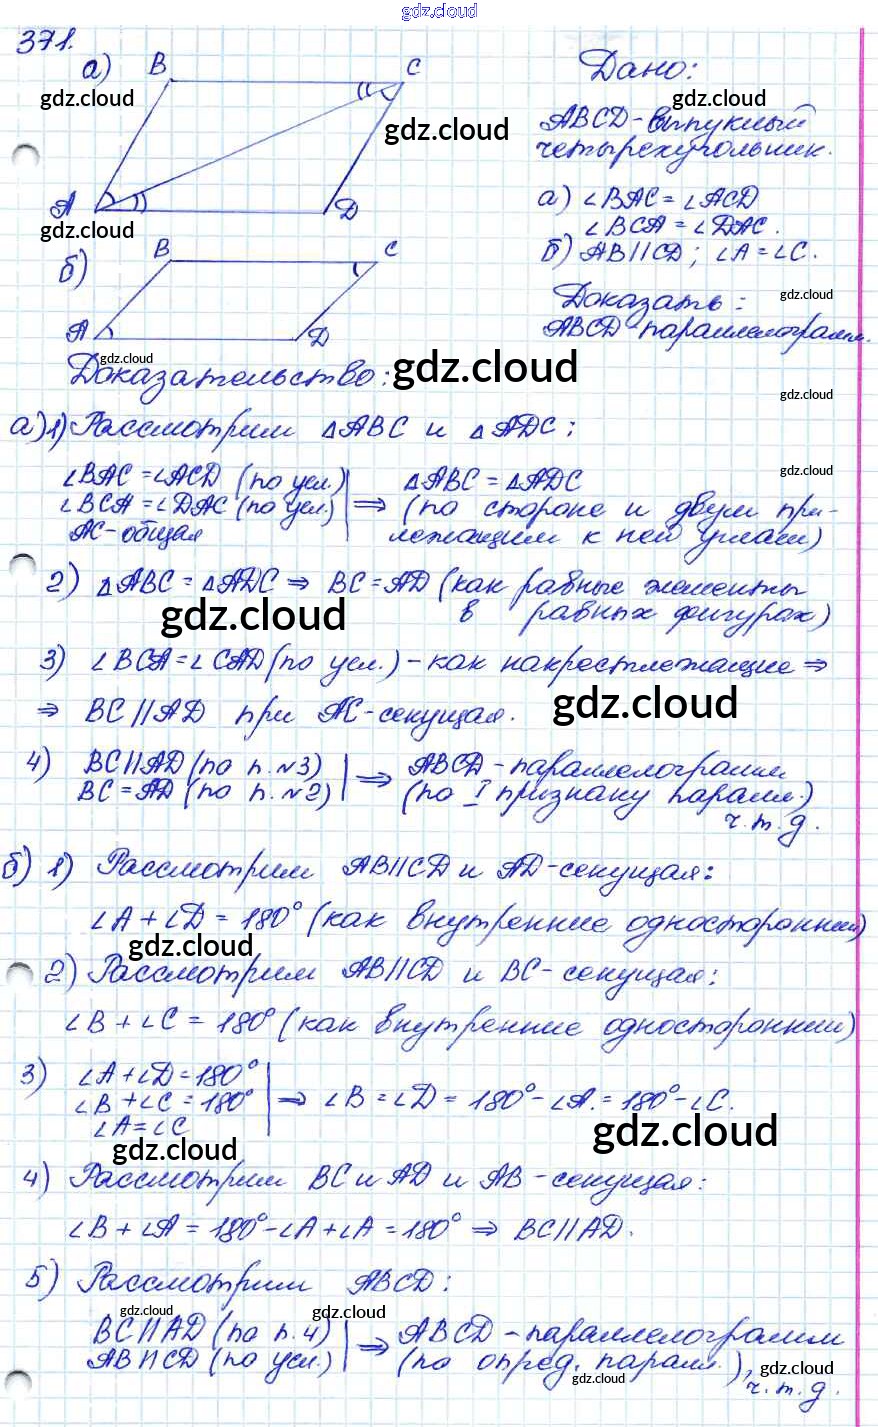 gdz.cloud
371.
а) B C
A D
gdz.cloud
gdz.cloud
gdz.cloud
gdz.cloud
Дано:
ABCD - выпуклый
четырехугольник.
а) ∠BAC = ∠ACD
∠BCA = ∠DAC.
б) AB||CD; ∠A = ∠C.
б) B C
A D
gdz.cloud
Доказать:
ABCD - параллелограмм.
gdz.cloud
Доказательство:
gdz.cloud
gdz.cloud
а) 1) Рассмотрим △ABC и △ADC:
gdz.cloud
∠BAC = ∠ACD (по усл.)
∠BCA = ∠DAC (по усл.)
AC - общая
⇒ △ABC = △ADC
(по стороне и двум при-
лежащим к ней углам)
2) △ABC = △ADC ⇒ BC = AD (как равные элементы
в равных фигурах)
gdz.cloud
3) ∠BCA = ∠CAD (по усл.) - как накрестлежащие ⇒
⇒ BC||AD при AC - секущая.
gdz.cloud
4) BC||AD (по п. №3)
BC = AD (по п. №2)
⇒ ABCD - параллелограмм
(по I признаку паралл.)
ч.т.д.
б) 1) Рассмотрим AB||CD и AD - секущая:
∠A + ∠D = 180° (как внутренние односторонние)
gdz.cloud
2) Рассмотрим AB||CD и BC - секущая:
∠B + ∠C = 180° (как внутренние односторонние)
3) ∠A + ∠D = 180°
∠B + ∠C = 180°
∠A = ∠C
⇒ ∠B = ∠D = 180° - ∠A. = 180° - ∠C.
gdz.cloud
gdz.cloud
4) Рассмотрим BC и AD и AB - секущая:
∠B + ∠A = 180° - ∠A + ∠A = 180° ⇒ BC||AD.
5) Рассмотрим ABCD:
gdz.cloud
gdz.cloud
BC||AD (по п. 4)
AB||CD (по усл.)
⇒ ABCD - параллелограмм
(по опред. паралл.),
gdz.cloud
gdz.cloud
ч.т.д.